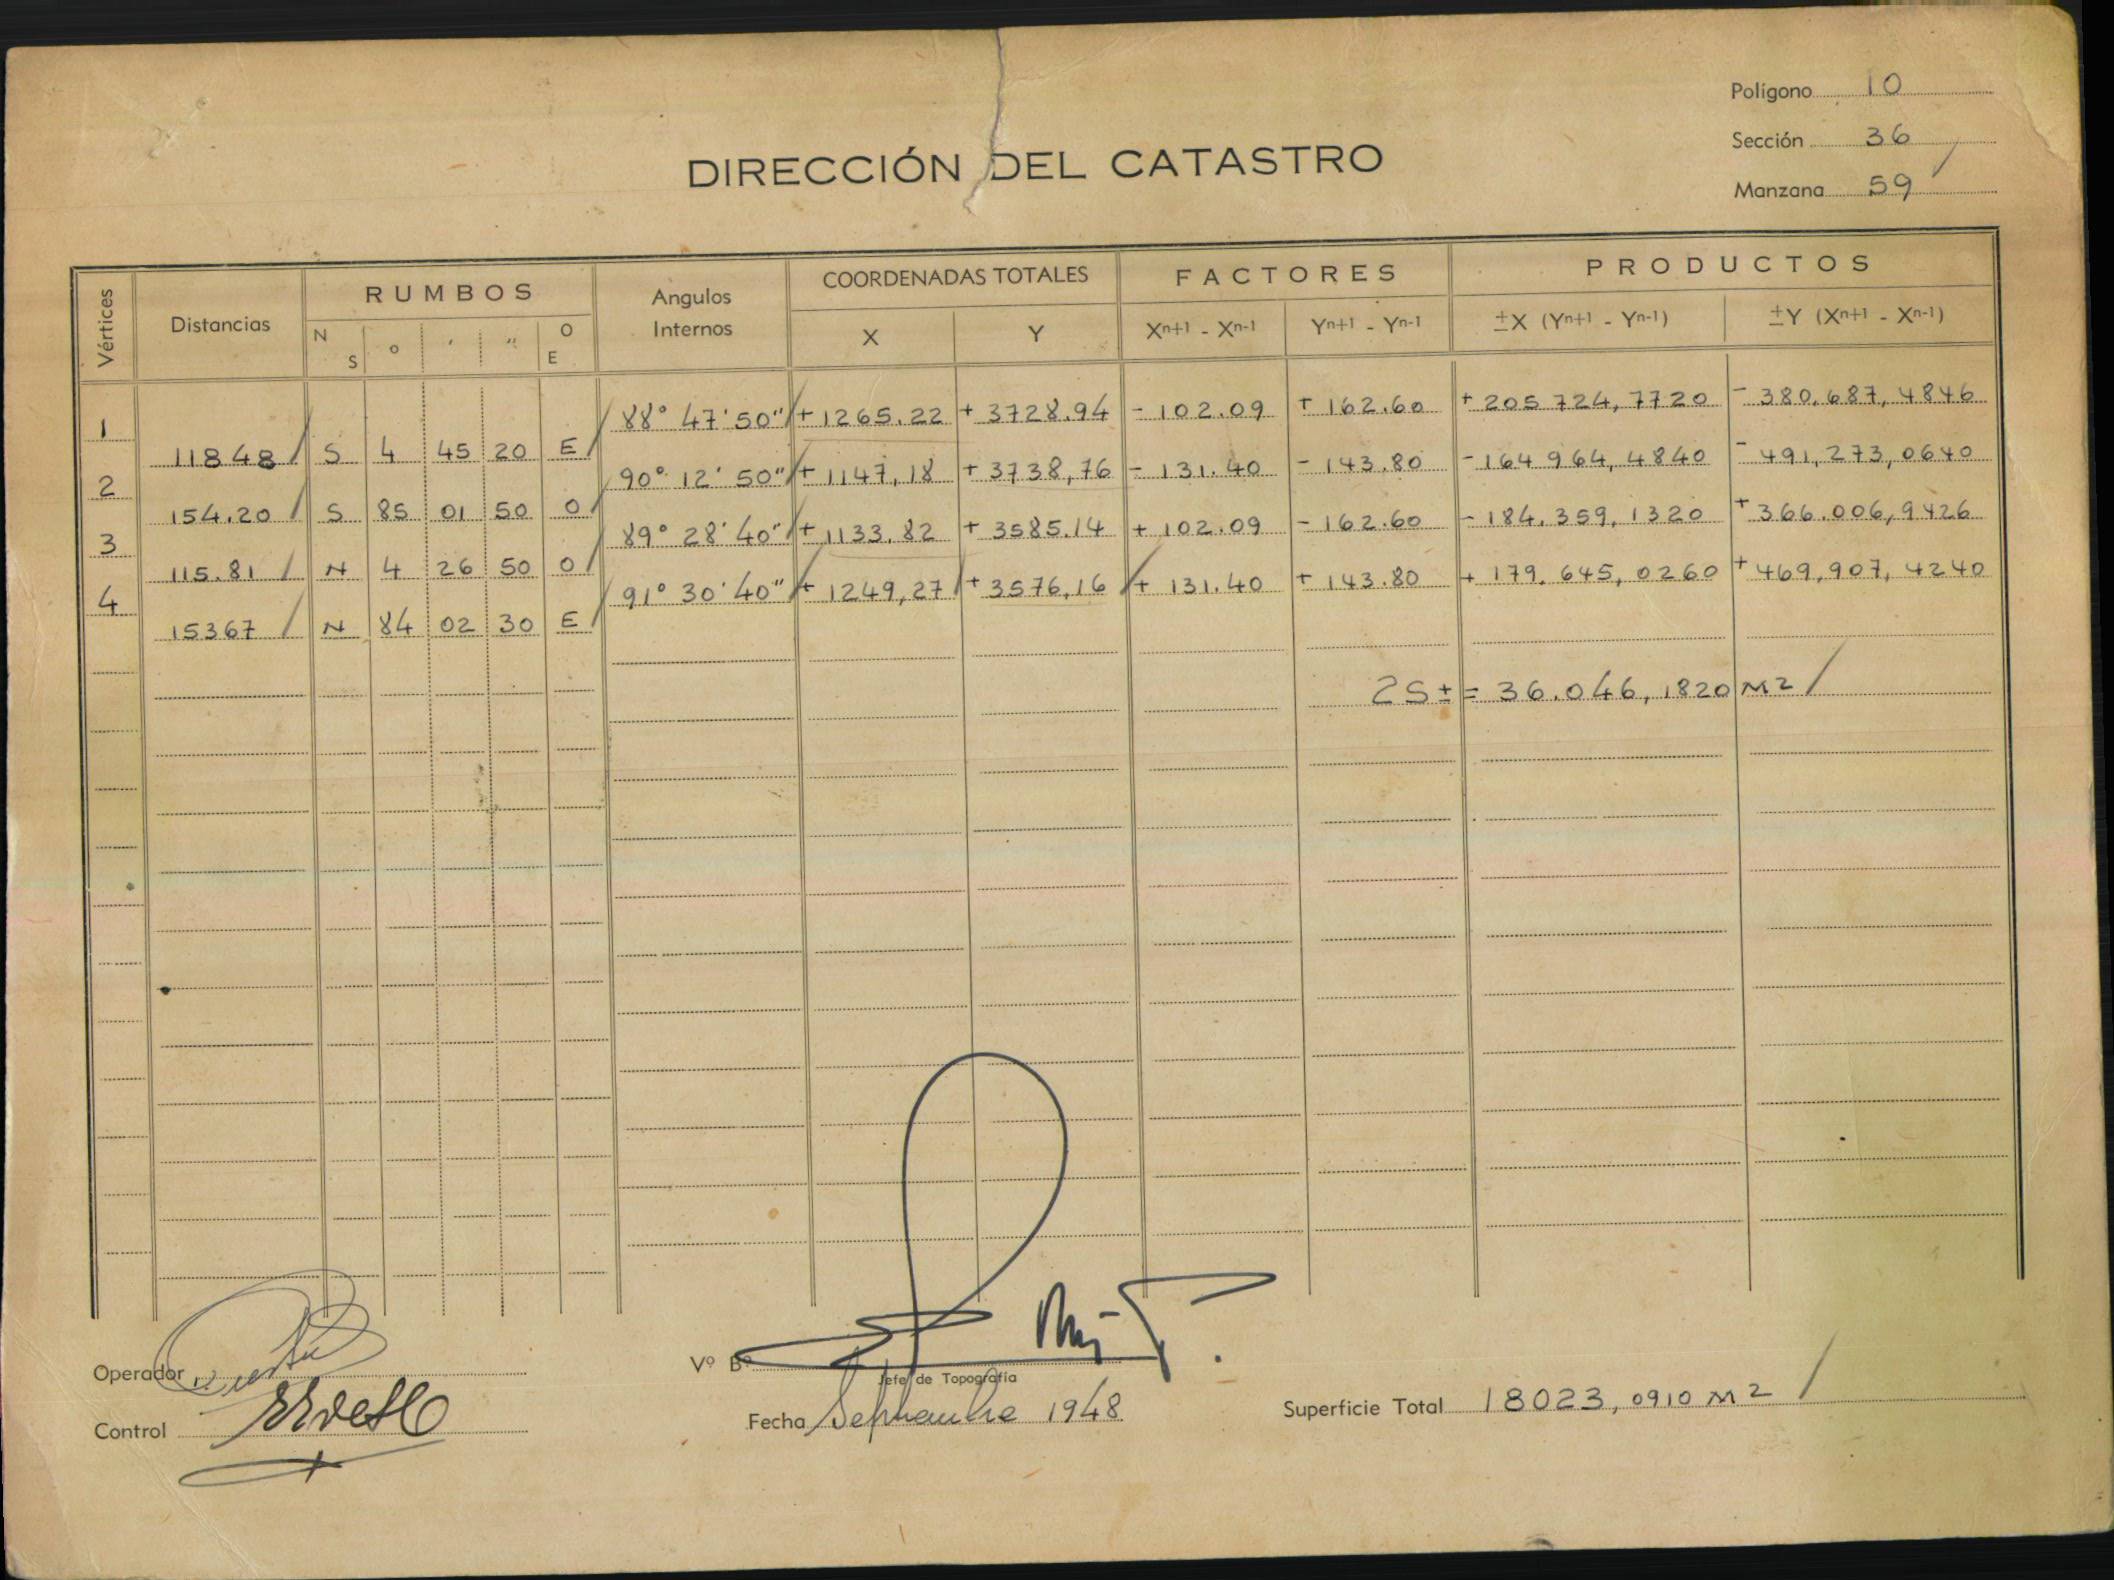 Polígono 10
Sección 36
Manzana 59
DIRECCIÓN DEL CATASTRO
Vértices Distancias RUMBOS N S o ' " O E Angulos Internos COORDENADAS TOTALES X Y FACTORES Xn+1 - Xn-1 Yn+1 - Yn-1 PRODUCTOS ±X (Yn+1 - Yn-1) ±Y (Xn+1 - Xn-1)
1 88° 47' 50" + 1265.22 + 3728.94 - 102.09 + 162.60 + 205 724,7720 - 380.687,4846
118 48 S 4 45 20 E
2 90° 12' 50" + 1147,18 + 3738,76 - 131.40 - 143.80 - 164 964,4840 - 491,273,0640
154.20 S 85 01 50 O
3 89° 28' 40" + 1133.82 + 3585.14 + 102.09 - 162.60 - 184.359,1320 + 366.006,9426
115.81 N 4 26 50 O
4 91° 30' 40" + 1249,27 + 3576,16 + 131.40 + 143.80 + 179.645,0260 + 469,907,4240
15367 N 84 02 30 E
2S ± = 36.046,1820 M2
Operador
Control
Vº Bº
Jefe de Topografía
Fecha Septiembre 1948
Superficie Total 18023,0910 M2